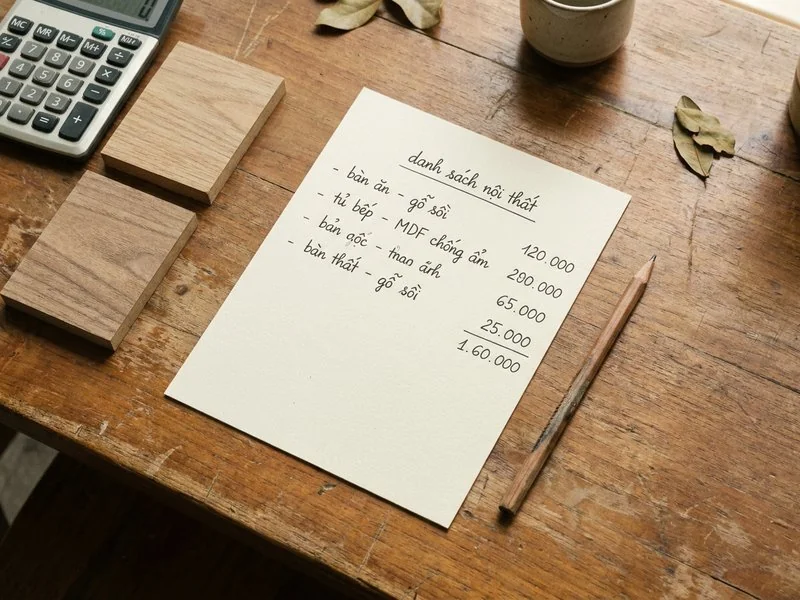 danh sách nội thất
- bàn ăn - gỗ sồi 120.000
- tủ bếp - MDF chống ẩm 290.000
- bản gốc - ảnh 65.000
- bàn thất - gỗ sồi 25.000
1.60.000
MC MR M- M+
7 8 9 ÷
4 5 6 ×
1 2 3 -
0 = +